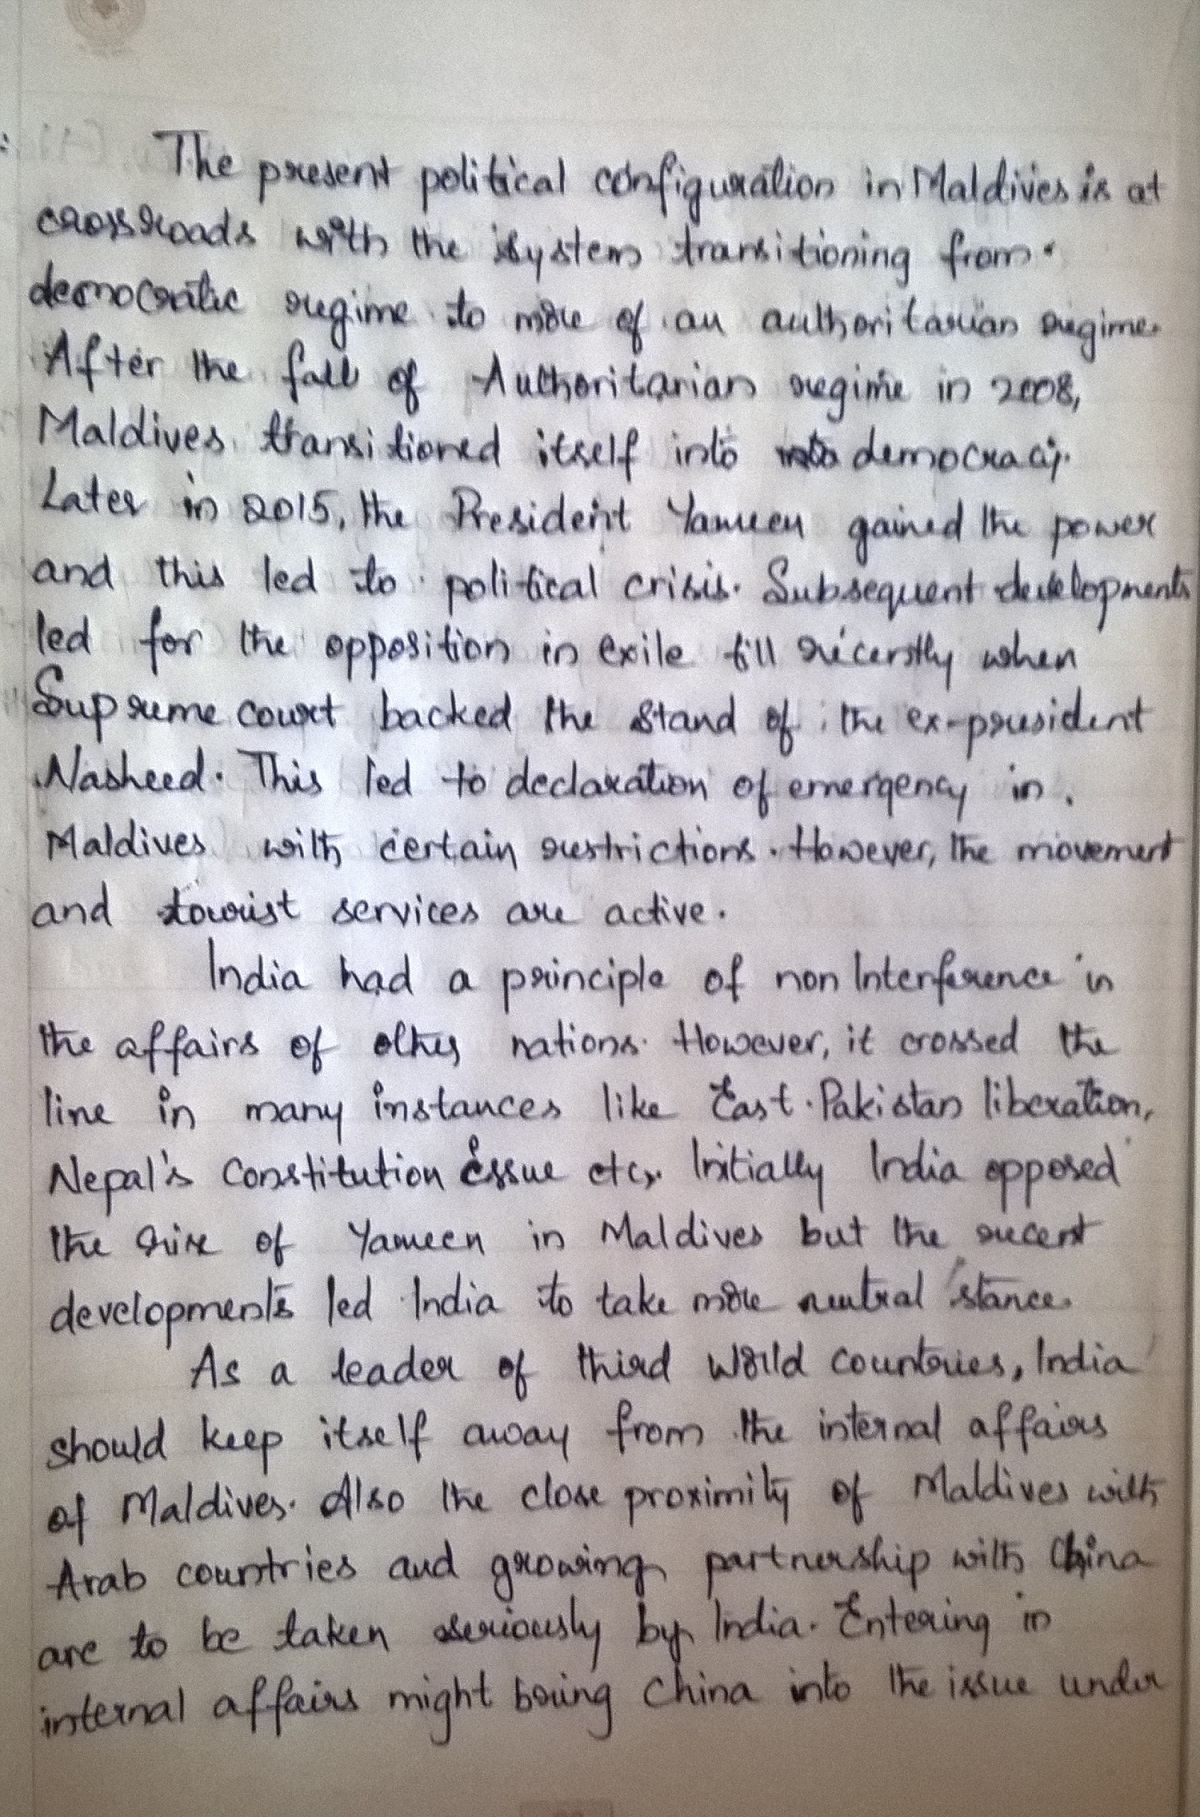 The present political configuration in Maldives is at
crossroads with the system transitioning from
democratic regime to more of an authoritarian regime.
After the fall of Authoritarian regime in 2008,
Maldives transitioned itself into democracy.
Later in 2015, the President Yameen gained the power
and this led to political crisis. Subsequent developments
led for the opposition in exile till recently when
Supreme court backed the stand of the ex-president
Nasheed. This led to declaration of emergency in
Maldives with certain restrictions. However, the movement
and tourist services are active.
India had a principle of non Interference in
the affairs of other nations. However, it crossed the
line in many instances like East Pakistan liberation,
Nepal's Constitution issue etc,. Initially India opposed
the rise of Yameen in Maldives but the recent
developments led India to take more neutral stance.
As a leader of third world countries, India
should keep itself away from the internal affairs
of Maldives. Also the close proximity of Maldives with
Arab countries and growing partnership with China
are to be taken seriously by India. Entering in
internal affairs might bring China into the issue under